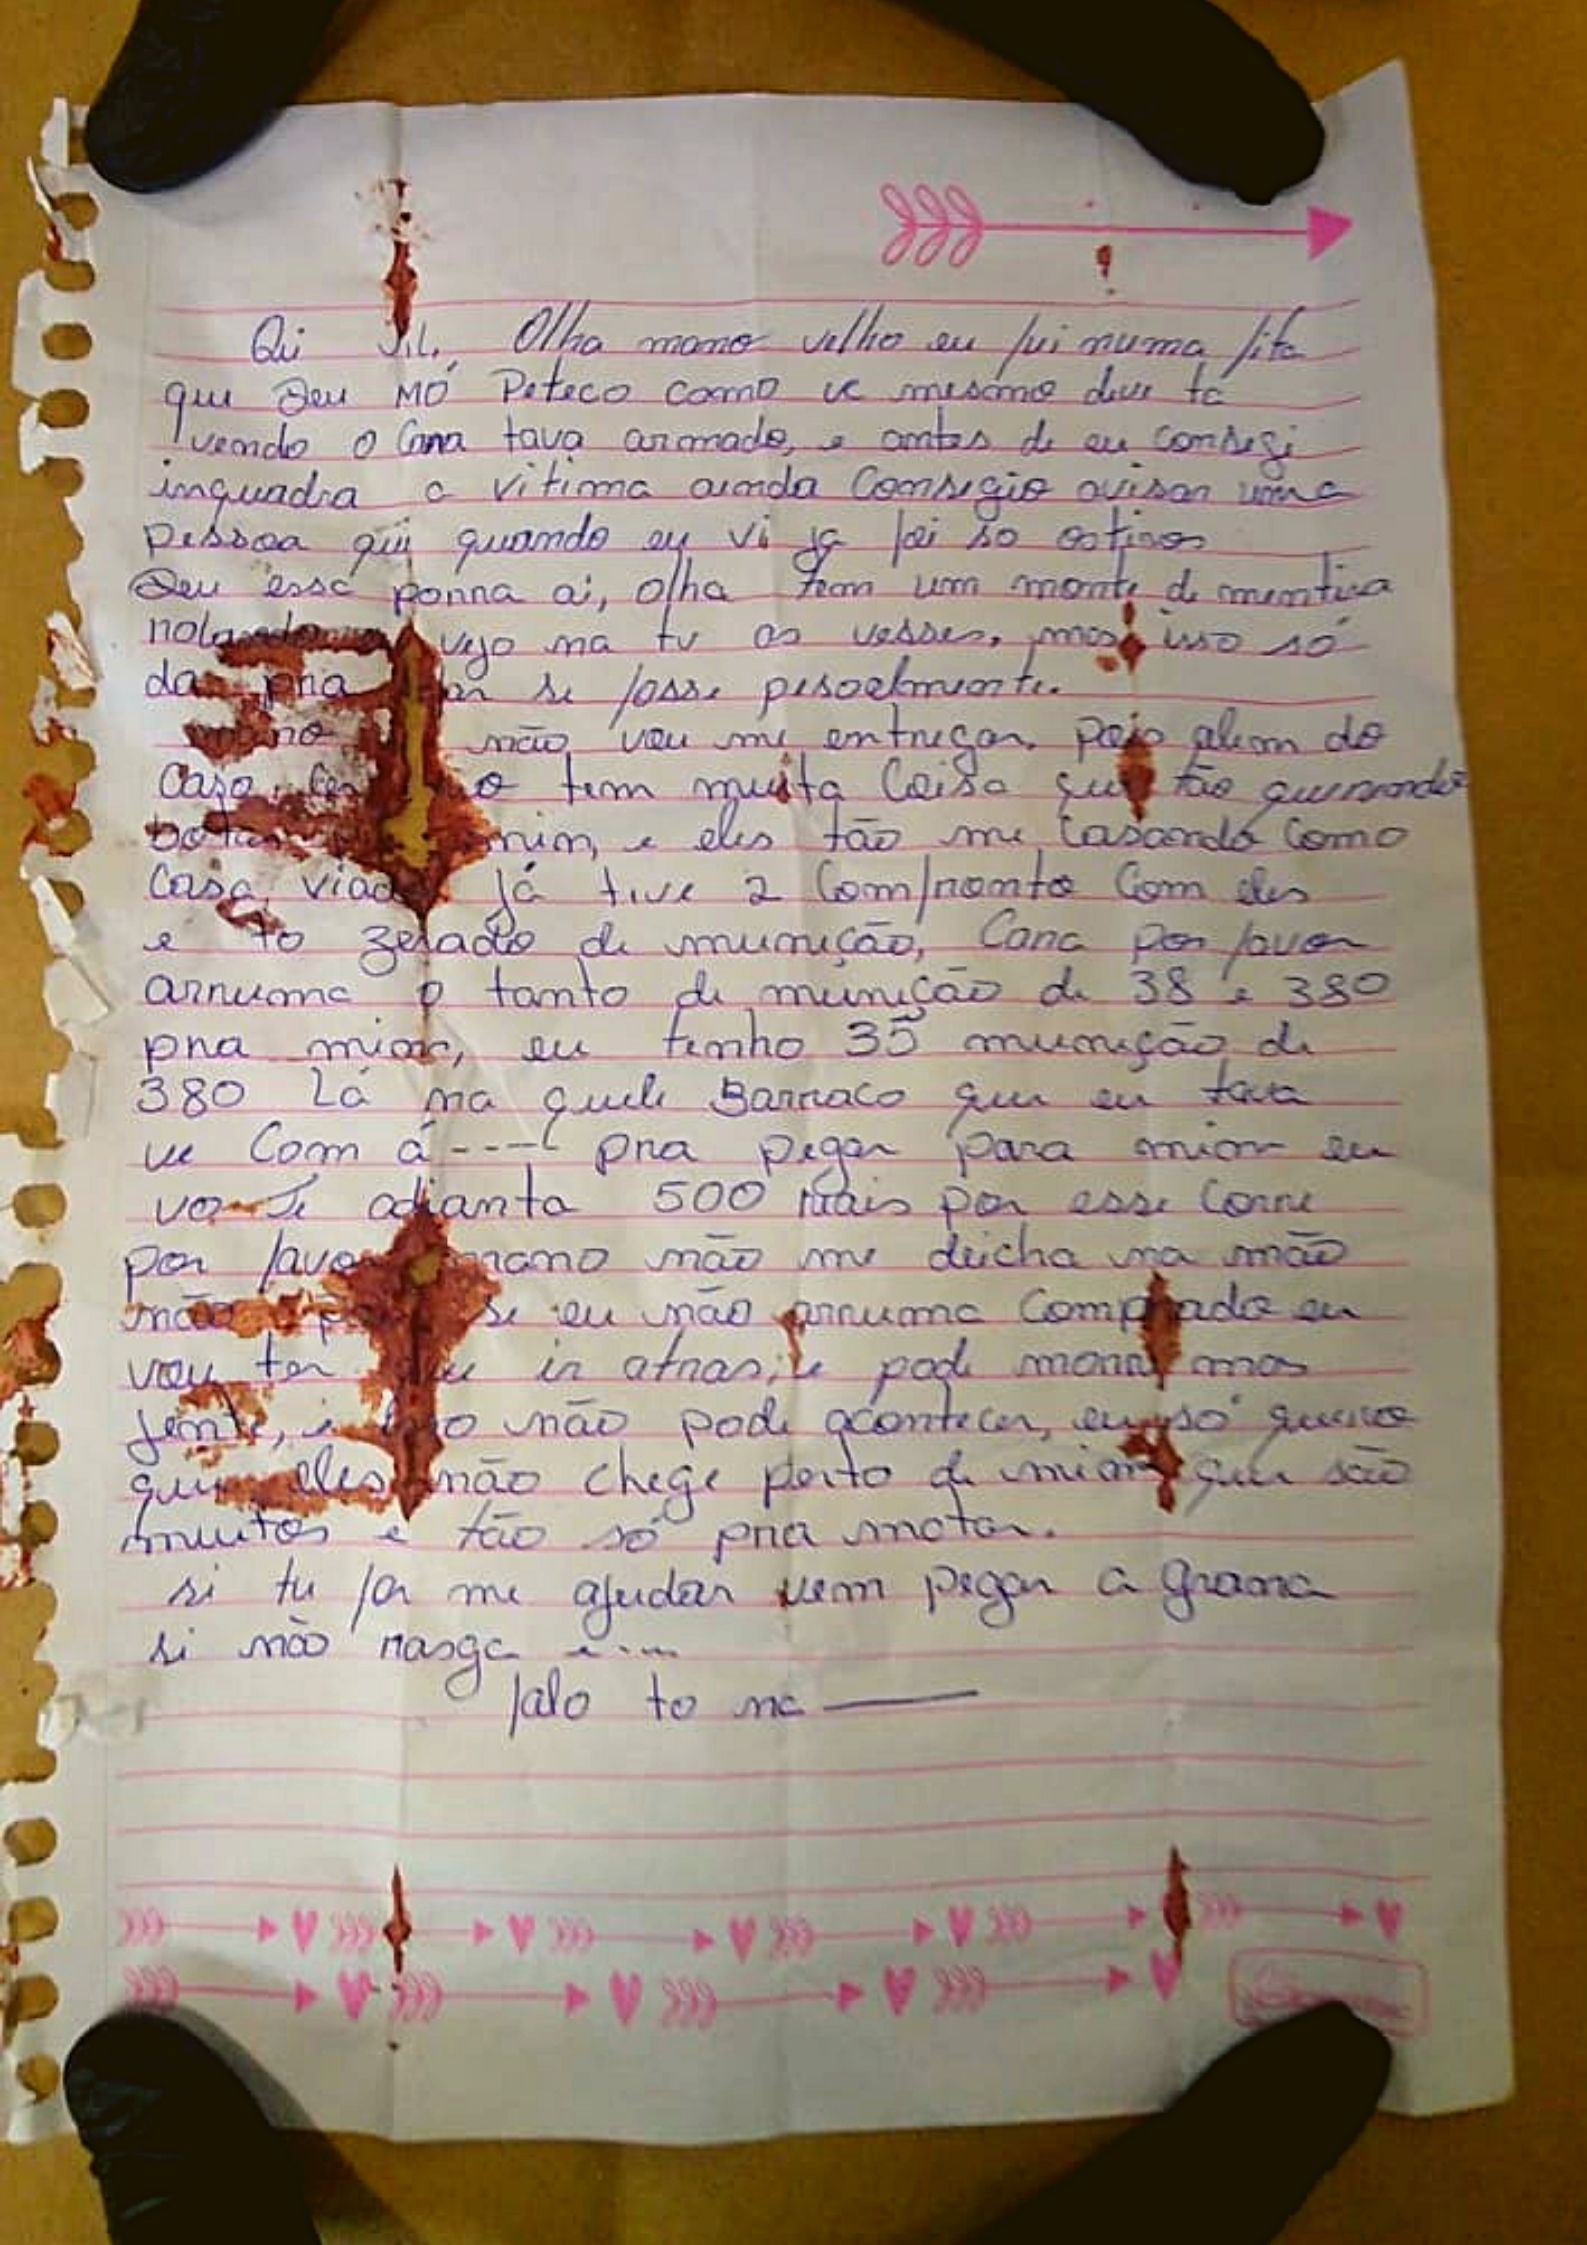 Oi Vil. Olha mano velho eu fui numa fita
que Deu MÓ Peteco como vc mesmo deve ta
vendo o Cara tava armado, e antes de eu consegi
inquadra a vitima ainda Consegio avisar uma
pessoa qui quando eu vi ja foi so os tiros
Deu essa porra ai, olha tem um monte de mentira
vejo na tv as vesses, mas isso só
da pra se fosse pesoalmente.
não vou me entregar, pois alem do
Caso tem muita Coisa que tão querendo
botar mim, e eles tão me Casando Como
Casa viado já tive 2 Comfronto Com eles
e to zerado de munição, Cara por favor
arruma o tanto de munição de 38 e 380
pra mim, eu tenho 35 munição de
380 Lá na quele Barraco que eu tava
ve Com á ---- pra pegar para mim eu
vo Te adianta 500 mais por esse Corre
por favor mano não me deicha na mão
não se eu não arruma Comprado eu
vou ter que ir atras, e pode morre mas
jente, e isso não pode acontecer, eu só quero
que eles não chege perto de mim que são
muitos e tão só pra matar.
si tu for me ajudar vem pegar a grana
si não rasga e...
falo to na ——